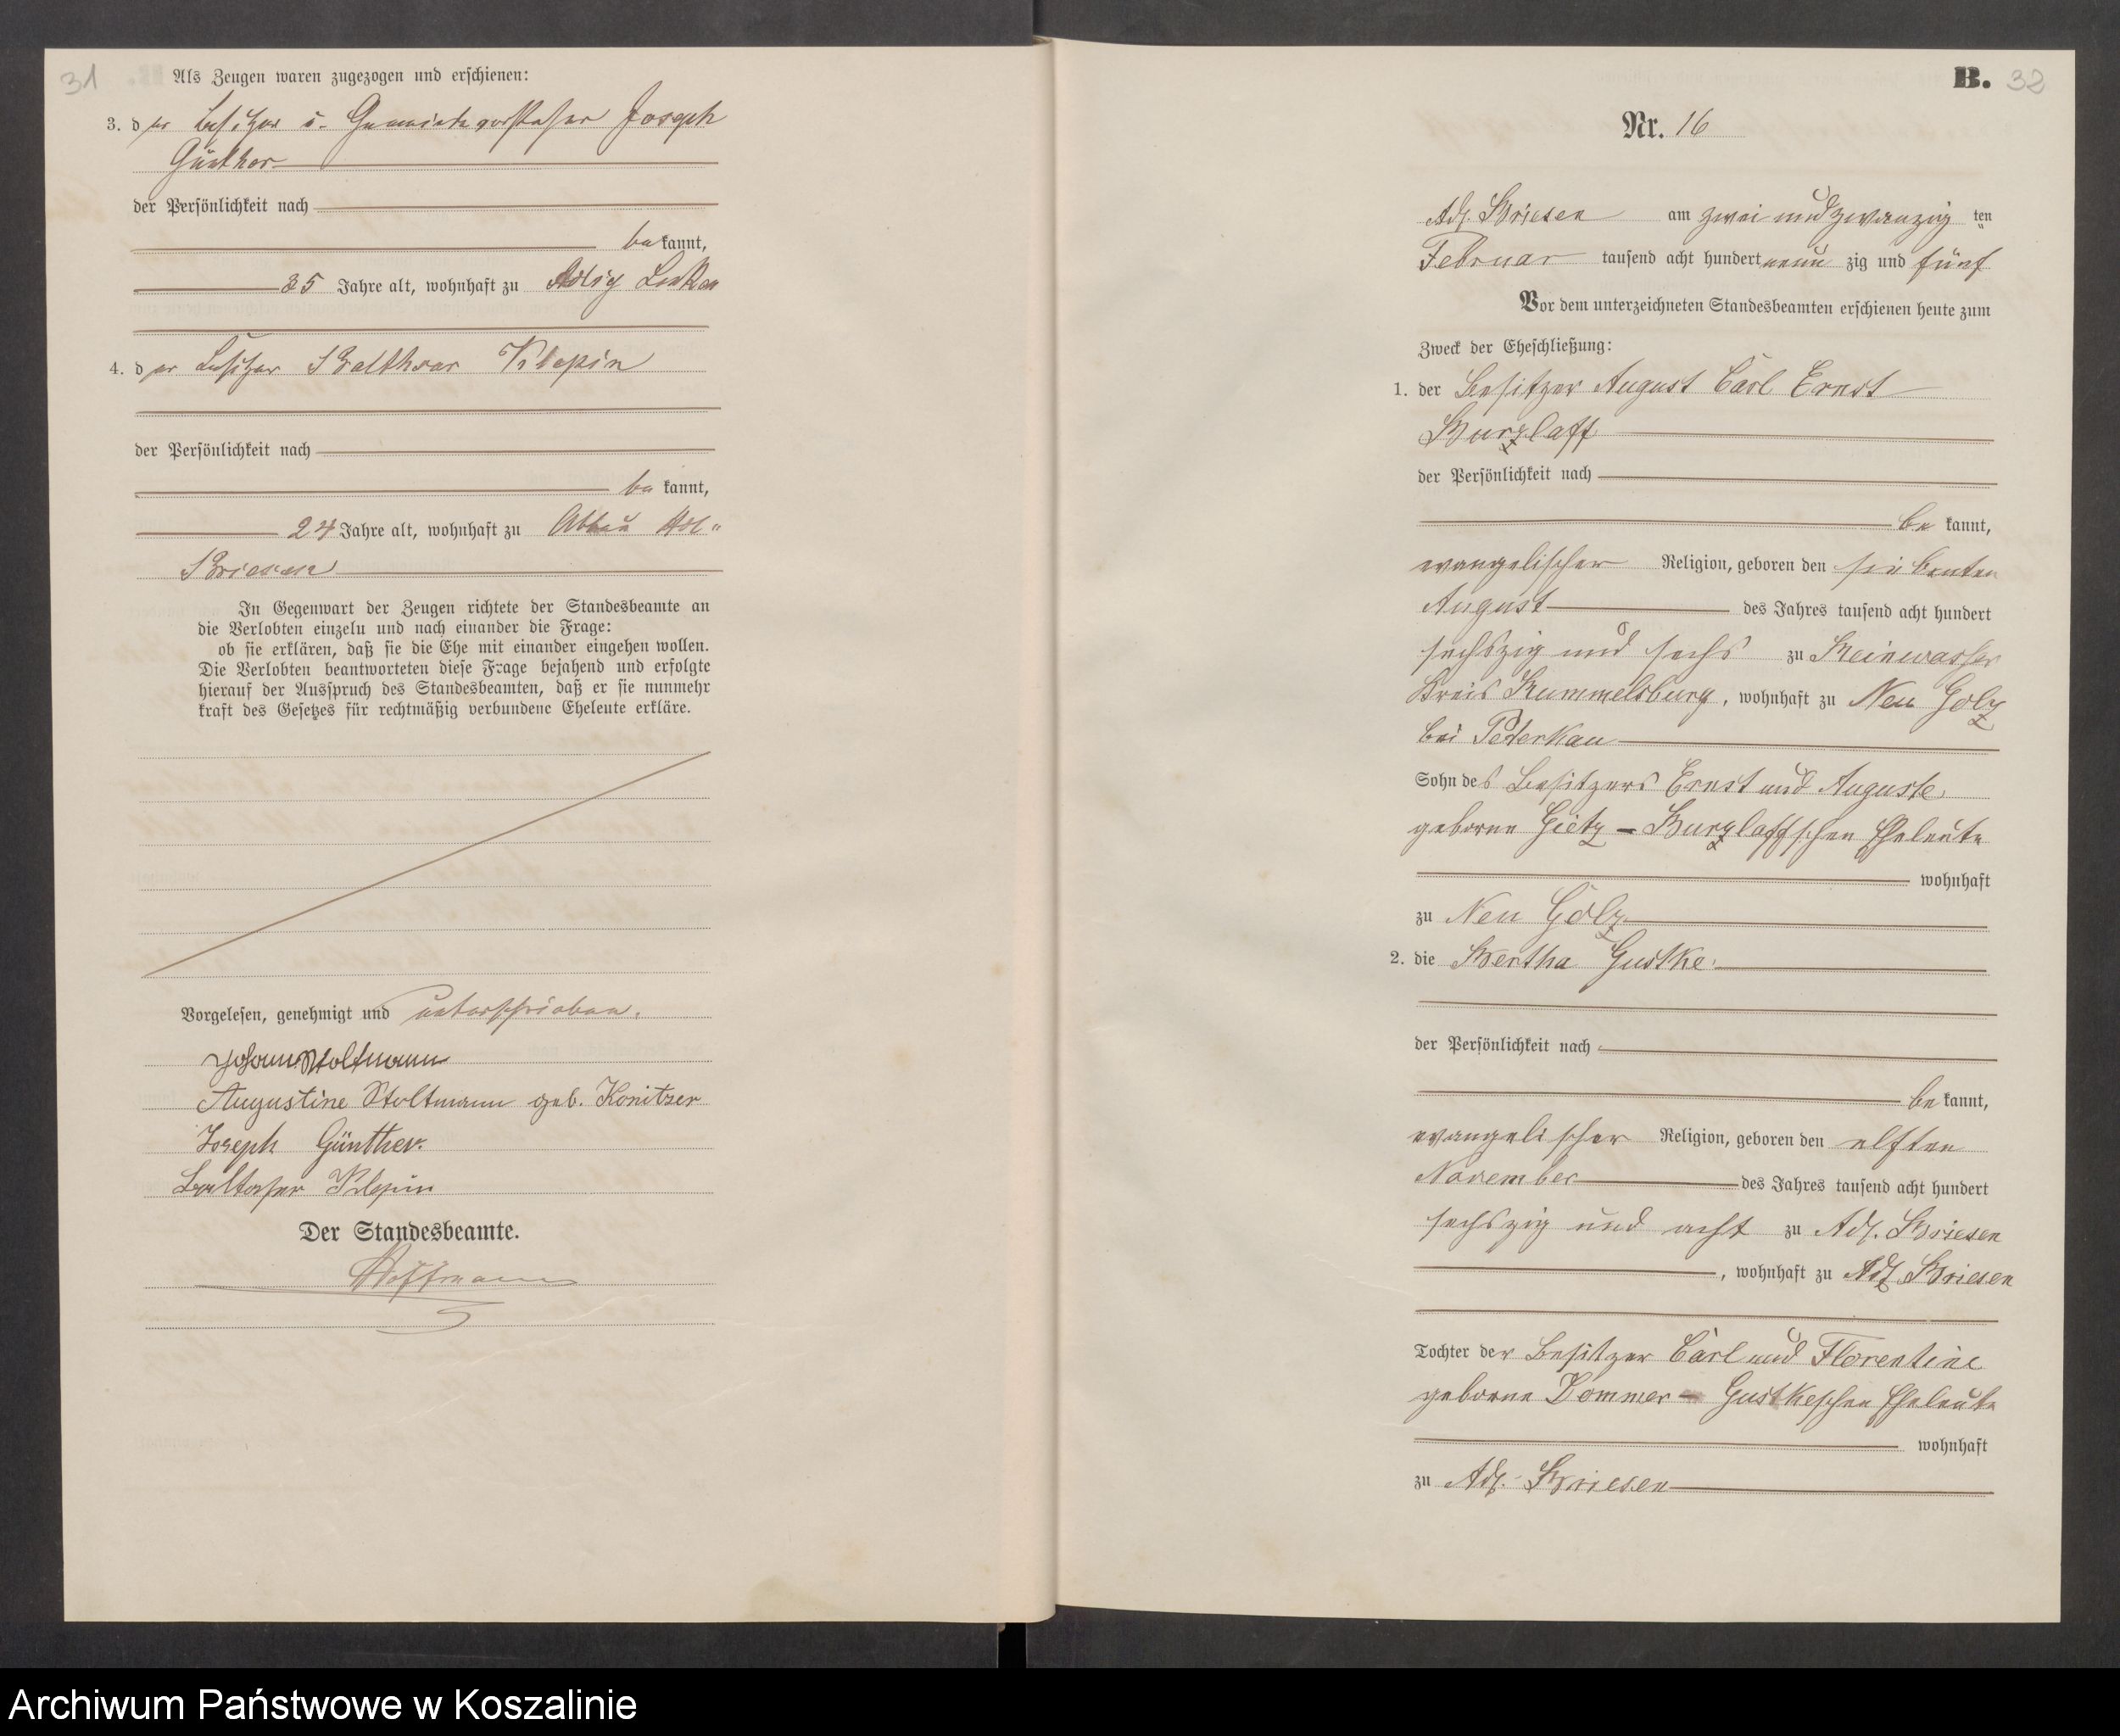 31
Als Zeugen waren zugezogen und erschienen:
3. der Besitzer u. Gemeindevorsteher Joseph
Günther
der Persönlichkeit nach
bekannt,
35 Jahre alt, wohnhaft zu Adlig Lonken
4. der Besitzer Balthasar Klepin
der Persönlichkeit nach
bekannt,
24 Jahre alt, wohnhaft zu Abbau Adl"
Briesen
In Gegenwart der Zeugen richtete der Standesbeamte an
die Verlobten einzeln und nach einander die Frage:
ob sie erklären, daß sie die Ehe mit einander eingehen wollen.
Die Verlobten beantworteten diese Frage bejahend und erfolgte
hierauf der Ausspruch des Standesbeamten, daß er sie nunmehr
kraft des Gesetzes für rechtmäßig verbundene Eheleute erkläre.
Vorgelesen, genehmigt und unterschrieben.
Johann Stoltmann
Augustine Stoltmann geb. Konitzer
Joseph Günther.
Baltaser Klepin
Der Standesbeamte.
Hoffmann
B. 32
Nr. 16
Adl. Briesen am zwei und zwanzig ten
Februar tausend acht hundert neun zig und fünf
Vor dem unterzeichneten Standesbeamten erschienen heute zum
Zweck der Eheschließung:
1. der Besitzer August Carl Ernst
Burzlaff
der Persönlichkeit nach
be kannt,
evangelischer Religion, geboren den siebenten
August des Jahres tausend acht hundert
sechszig und sechs zu Reinwasser
Kreis Rummelsburg, wohnhaft zu Neu Golz
bei Peterkau
Sohn des Besitzers Ernst und Auguste,
geborne Gietz - Burzlaffschen Eheleute
wohnhaft
zu Neu Golz
2. die Bertha Gustke
der Persönlichkeit nach
be kannt,
evangelischer Religion, geboren den elften
November des Jahres tausend acht hundert
sechszig und acht zu Adl. Briesen
, wohnhaft zu Adl. Briesen
Tochter der Besitzer Carl und Florentine
geborne Dommer - Gustkeschen Eheleute
wohnhaft
zu Adl. Briesen
Archiwum Państwowe w Koszalinie